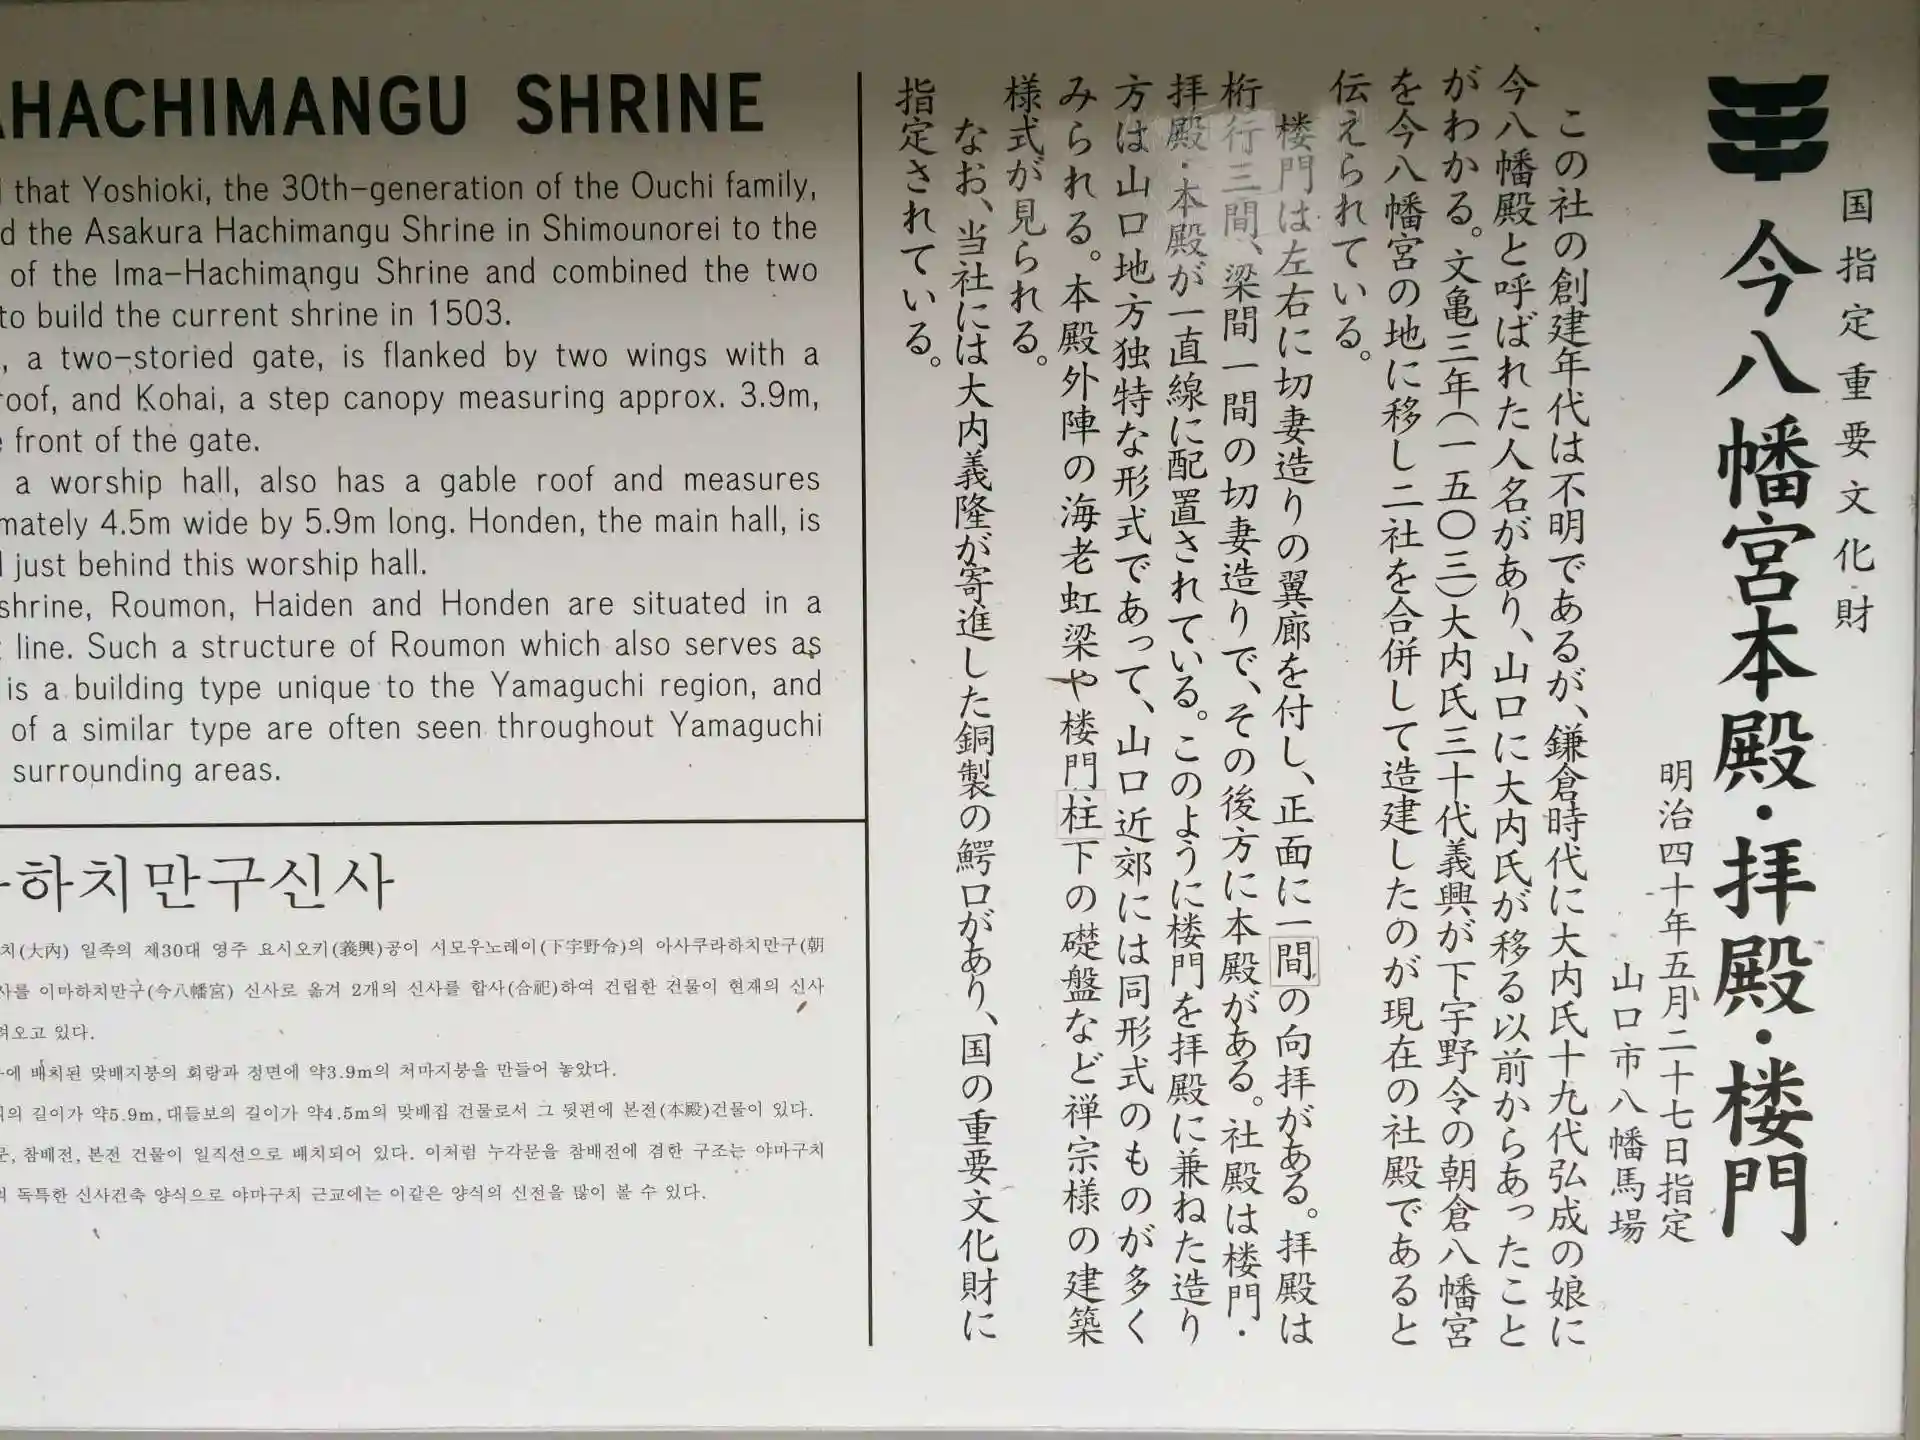 国指定重要文化財
今八幡宮本殿・拝殿・楼門
明治四十年五月二十七日指定
山口市八幡馬場
この社の創建年代は不明であるが、鎌倉時代に大内氏十九代弘成の娘に
今八幡殿と呼ばれた人名があり、山口に大内氏が移る以前からあったこと
がわかる。文亀三年(一五〇三)大内氏三十代義興が下宇野令の朝倉八幡宮
を今八幡宮の地に移し二社を合併して造建したのが現在の社殿であると
伝えられている。
楼門は左右に切妻造りの翼廊を付し、正面に一間の向拝がある。拝殿は
桁行三間、梁間一間の切妻造りで、その後方に本殿がある。社殿は楼門・
拝殿・本殿が一直線に配置されている。このように楼門を拝殿に兼ねた造り
方は山口地方独特な形式であって、山口近郊には同形式のものが多く
みられる。本殿外陣の海老虹梁や楼門柱下の礎盤など禅宗様の建築
様式が見られる。
なお、当社には大内義隆が寄進した銅製の鰐口があり、国の重要文化財に
指定されている。
HACHIMANGU SHRINE
that Yoshioki, the 30th-generation of the Ouchi family,
the Asakura Hachimangu Shrine in Shimounorei to the
of the Ima-Hachimangu Shrine and combined the two
to build the current shrine in 1503.
, a two-storied gate, is flanked by two wings with a
roof, and Kohai, a step canopy measuring approx. 3.9m,
front of the gate.
a worship hall, also has a gable roof and measures
mately 4.5m wide by 5.9m long. Honden, the main hall, is
just behind this worship hall.
shrine, Roumon, Haiden and Honden are situated in a
line. Such a structure of Roumon which also serves as
is a building type unique to the Yamaguchi region, and
of a similar type are often seen throughout Yamaguchi
surrounding areas.
하치만구신사
치(大內) 일족의 제30대 영주 요시오키(義興)공이 서모우노레이(下宇野令)의 아사쿠라하치만구(朝
사를 이마하치만구(今八幡宮) 신사로 옮겨 2개의 신사를 합사(合祀)하여 건립한 건물이 현재의 신사
려오고 있다.
에 배치된 맞배지붕의 회랑과 정면에 약3.9m의 처마지붕을 만들어 놓았다.
의 길이가 약5.9m,대들보의 길이가 약4.5m의 맞배집 건물로서 그 뒷편에 본전(本殿)건물이 있다.
문, 참배전, 본전 건물이 일직선으로 배치되어 있다. 이처럼 누각문을 참배전에 겸한 구조는 야마구치
의 독특한 신사건축 양식으로 야마구치 근교에는 이같은 양식의 신전을 많이 볼 수 있다.